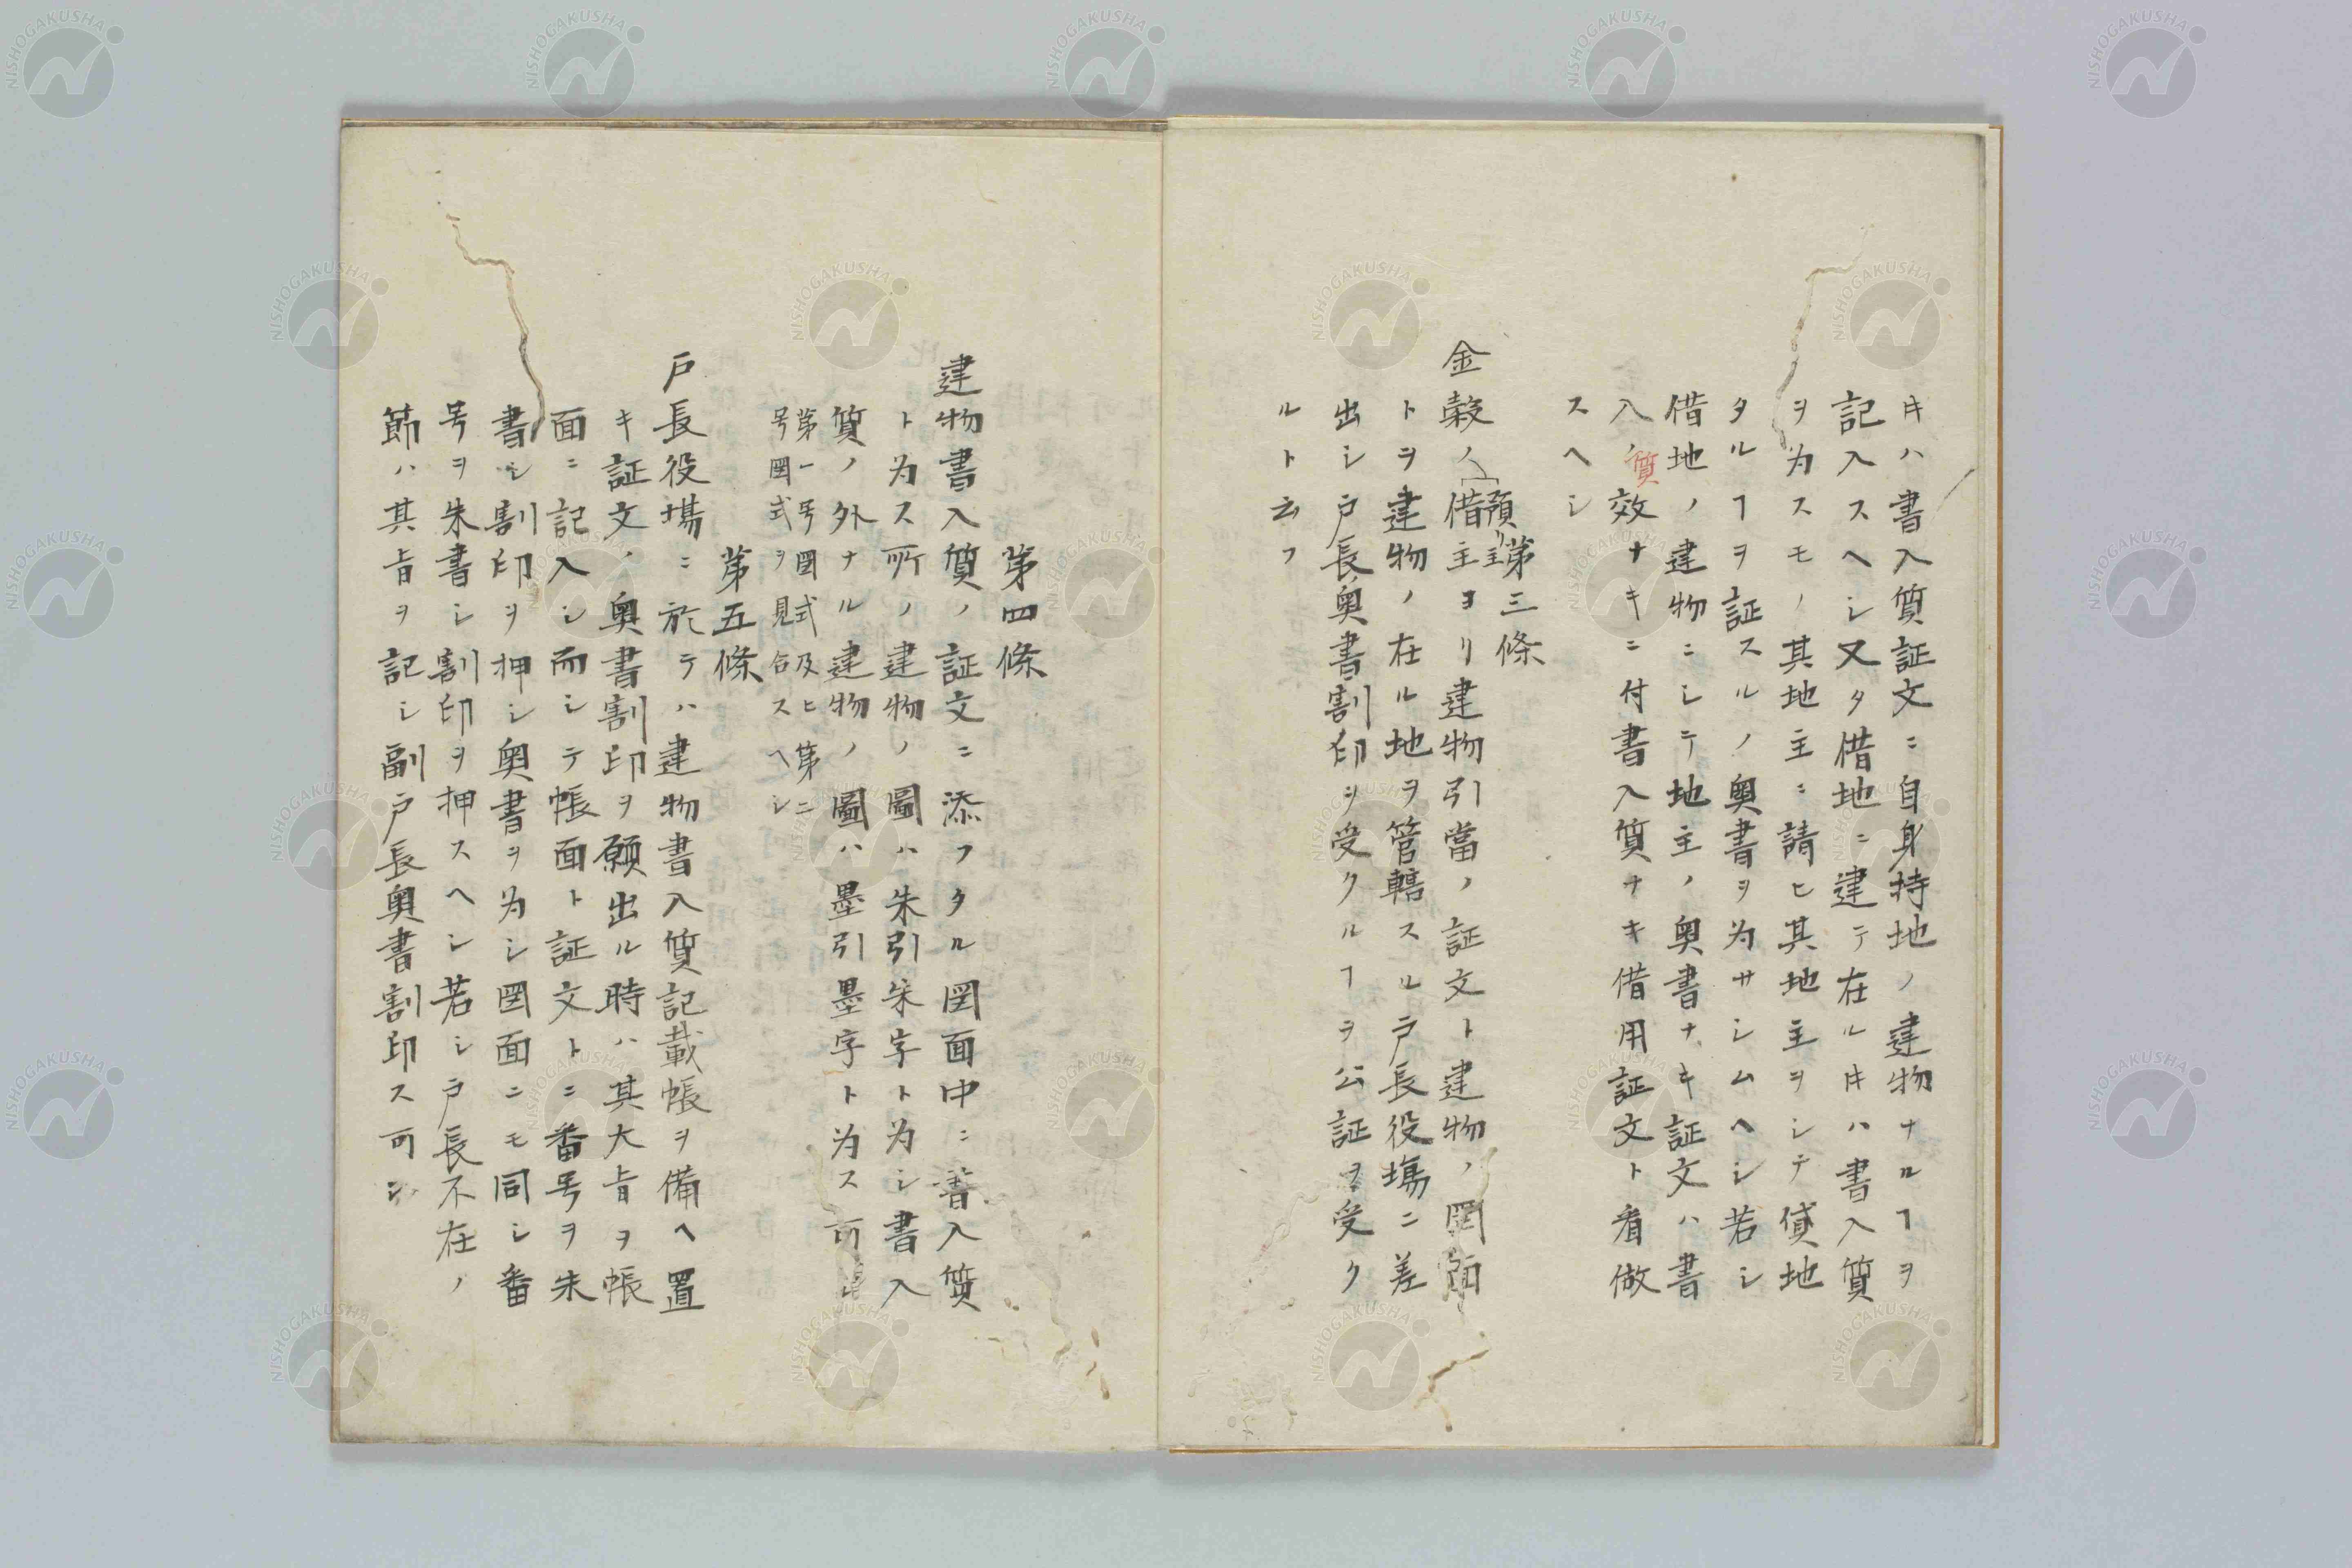 𪜈ハ書入質証文ニ自身持地ノ建物ナルヿヲ
記入スヘシ又タ借地ニ建テ在ル𪜈ハ書入質
ヲ為スモノ其地主ニ請ヒ其地主ヲシテ貸地
タルヿヲ証スルノ奥書ヲ為サシムヘシ若シ
借地ノ建物ニシテ地主ノ奥書ナキ証文ハ書
入質ノ效ナキニ付書入質ナキ借用証文ト看做
スヘシ
第三條
金穀ノ借主預リ主ヨリ建物引當ノ証文ト建物ノ図面
トヲ建物ノ在ル地ヲ管轄スル戸長役塲ニ差
出シ戸長奥書割印ヲ受クルヿヲ公証ヲ受ク
ルト云フ
第四條
建物書入質ノ証文ニ添フタル図面中ニ書入質
ト為ス所ノ建物ノ圖ハ朱引朱字ト為シ書入
質ノ外ナル建物ノ圖ハ墨引墨字ト為ス可シ
第一号図式及ヒ第二
号図式ヲ見合スヘシ
第五條
戸長役塲ニ於テハ建物書入質記載帳ヲ備ヘ置
キ証文ノ奥書割印ヲ願出ル時ハ其大旨ヲ帳
面ニ記入シ而シテ帳面ト証文トニ番号ヲ朱
書シ割印ヲ押シ奥書ヲ為シ図面ニモ同シ番
号ヲ朱書シ割印ヲ押スヘシ若シ戸長不在ノ
節ハ其旨ヲ記シ副戸長奥書割印ス可シ
NISHOGAKUSHA